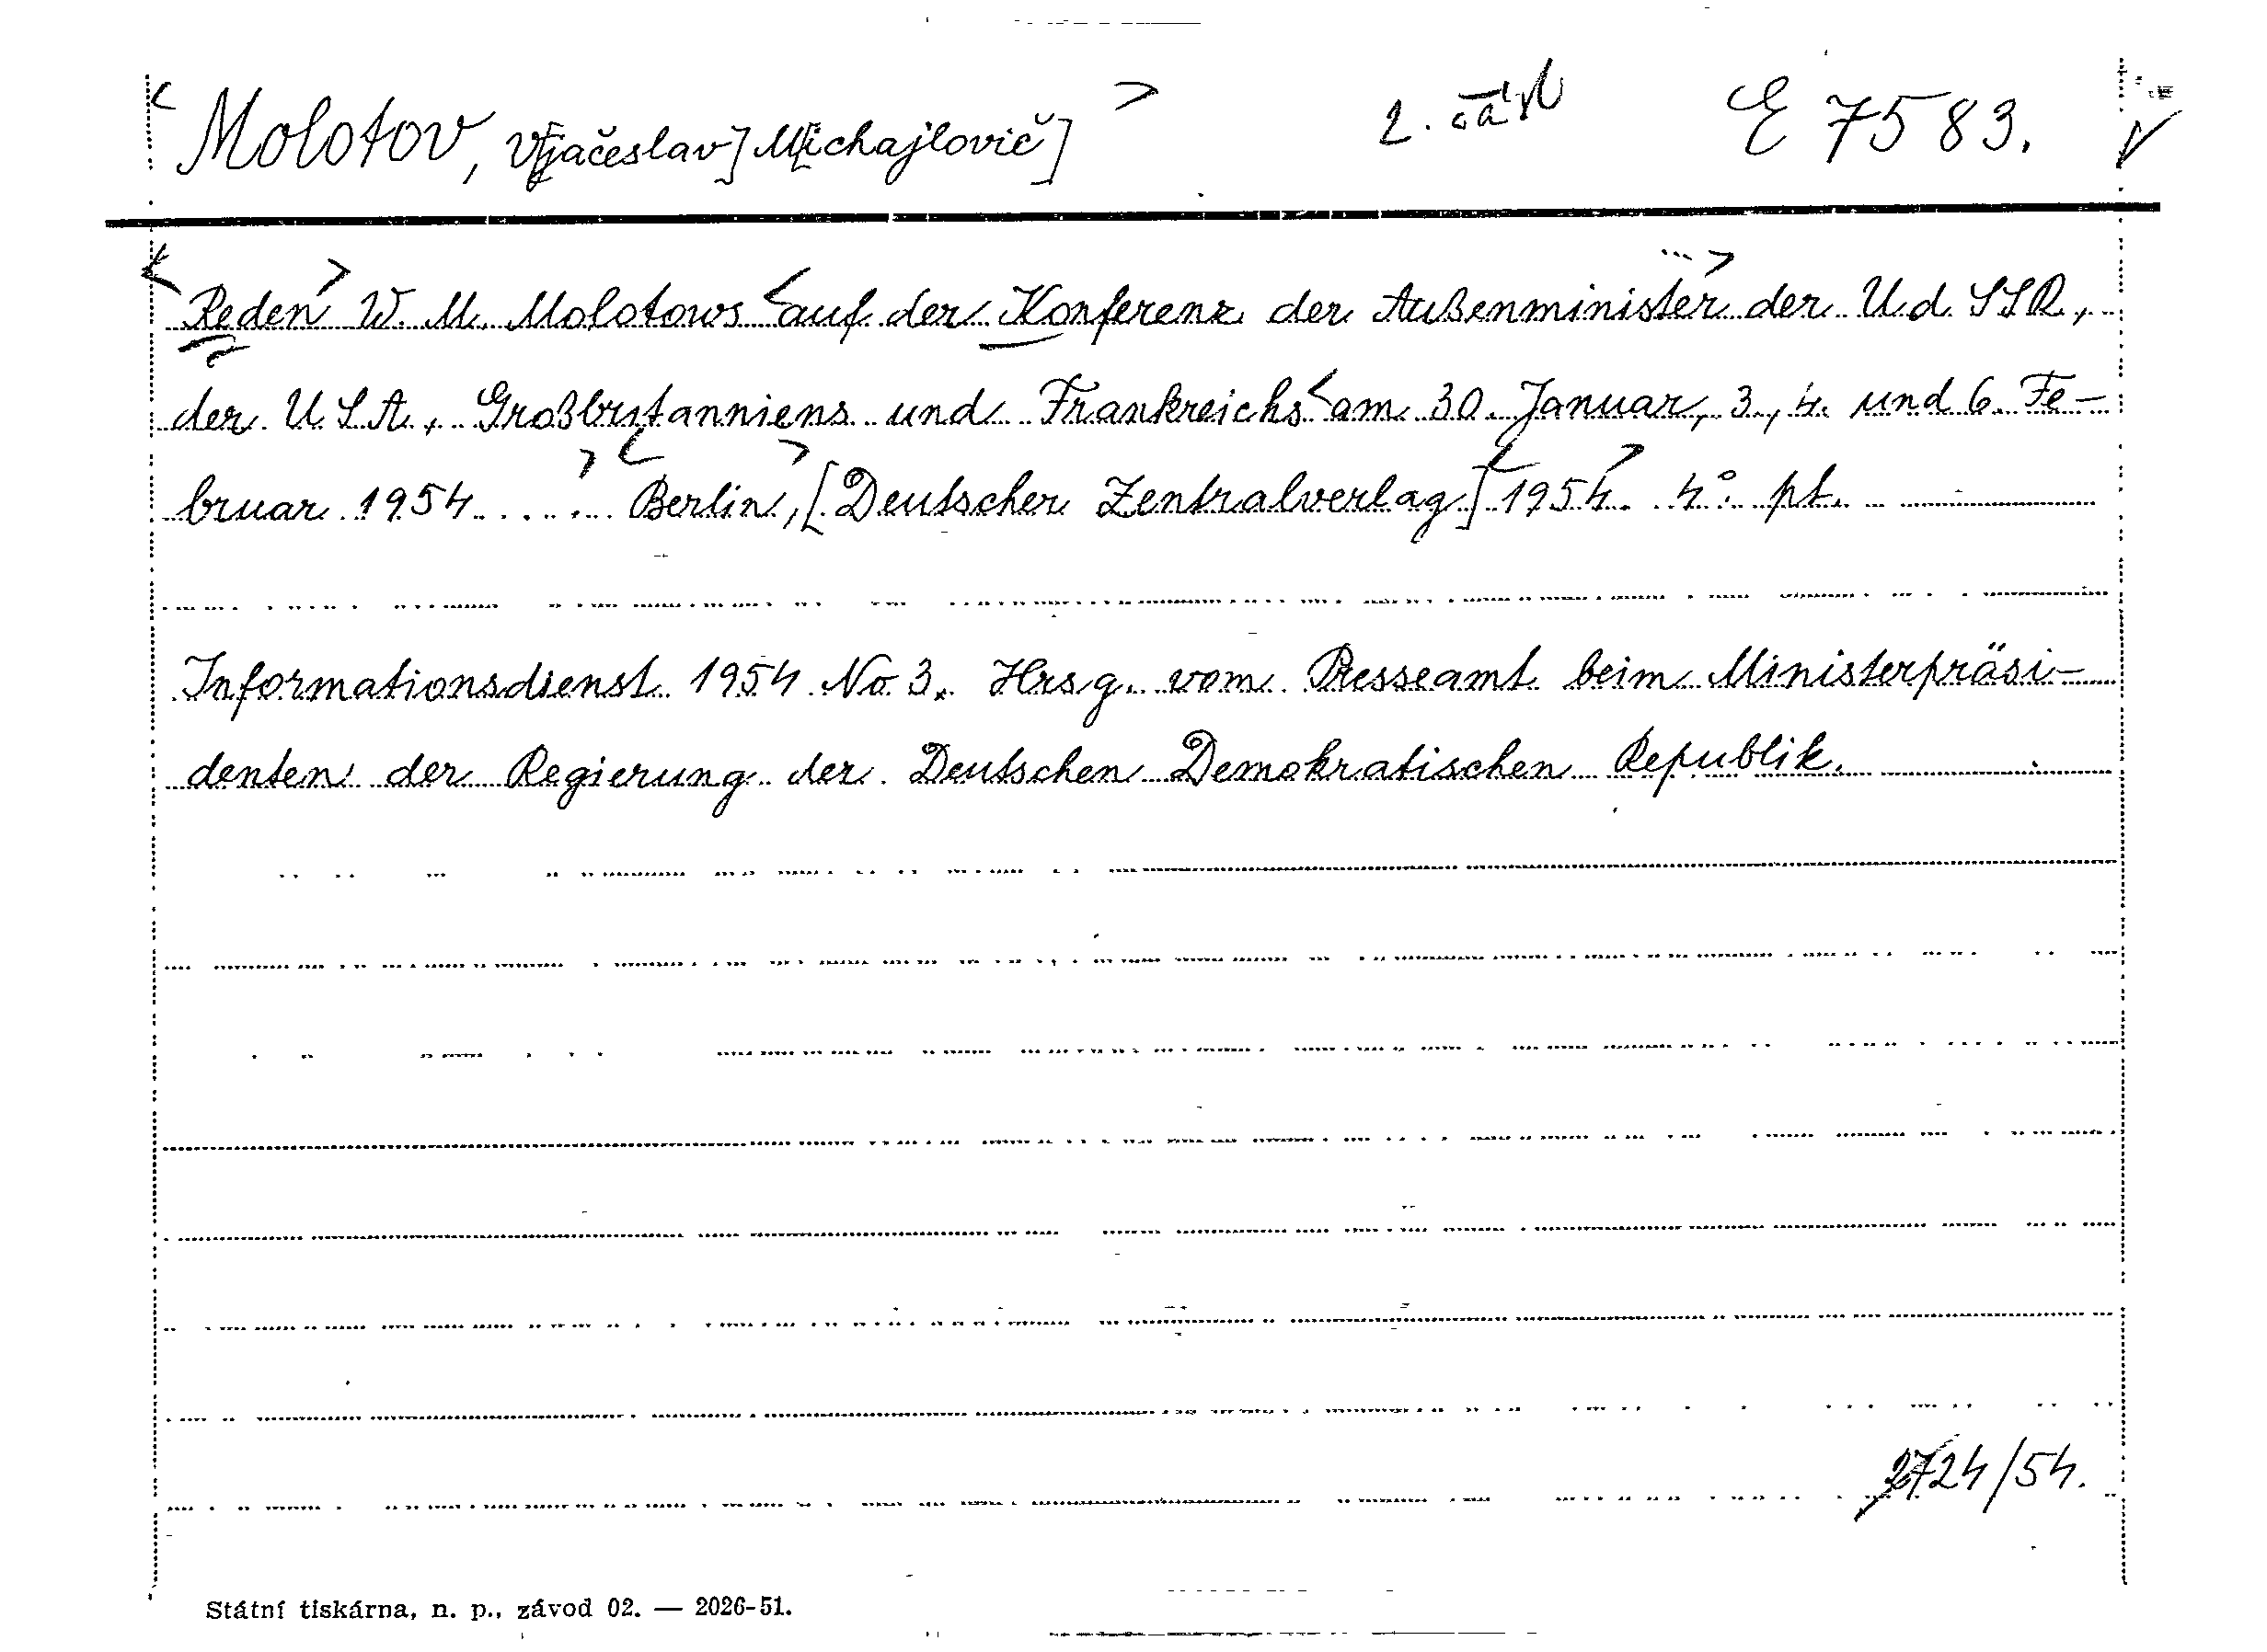 < Molotov, V[jačeslav] M[ichajlovič] > 2. část E 7583.
<Reden> W. M. Molotows <auf der Konferenz der Außenminister ...> der U.d.SSR,
der U.S.A., Großbritanniens und Frankreichs <am 30. Januar, 3., 4. und 6. Fe-
bruar 1954 .....> <Berlin>, [Deutscher Zentralverlag] <1954>. 4°. pt.
Informationsdienst 1954 No 3. Hrsg. vom Presseamt beim Ministerpräsi-
denten der Regierung der Deutschen Demokratischen Republik.
2724/54.
Státní tiskárna, n. p., závod 02. — 2026-51.